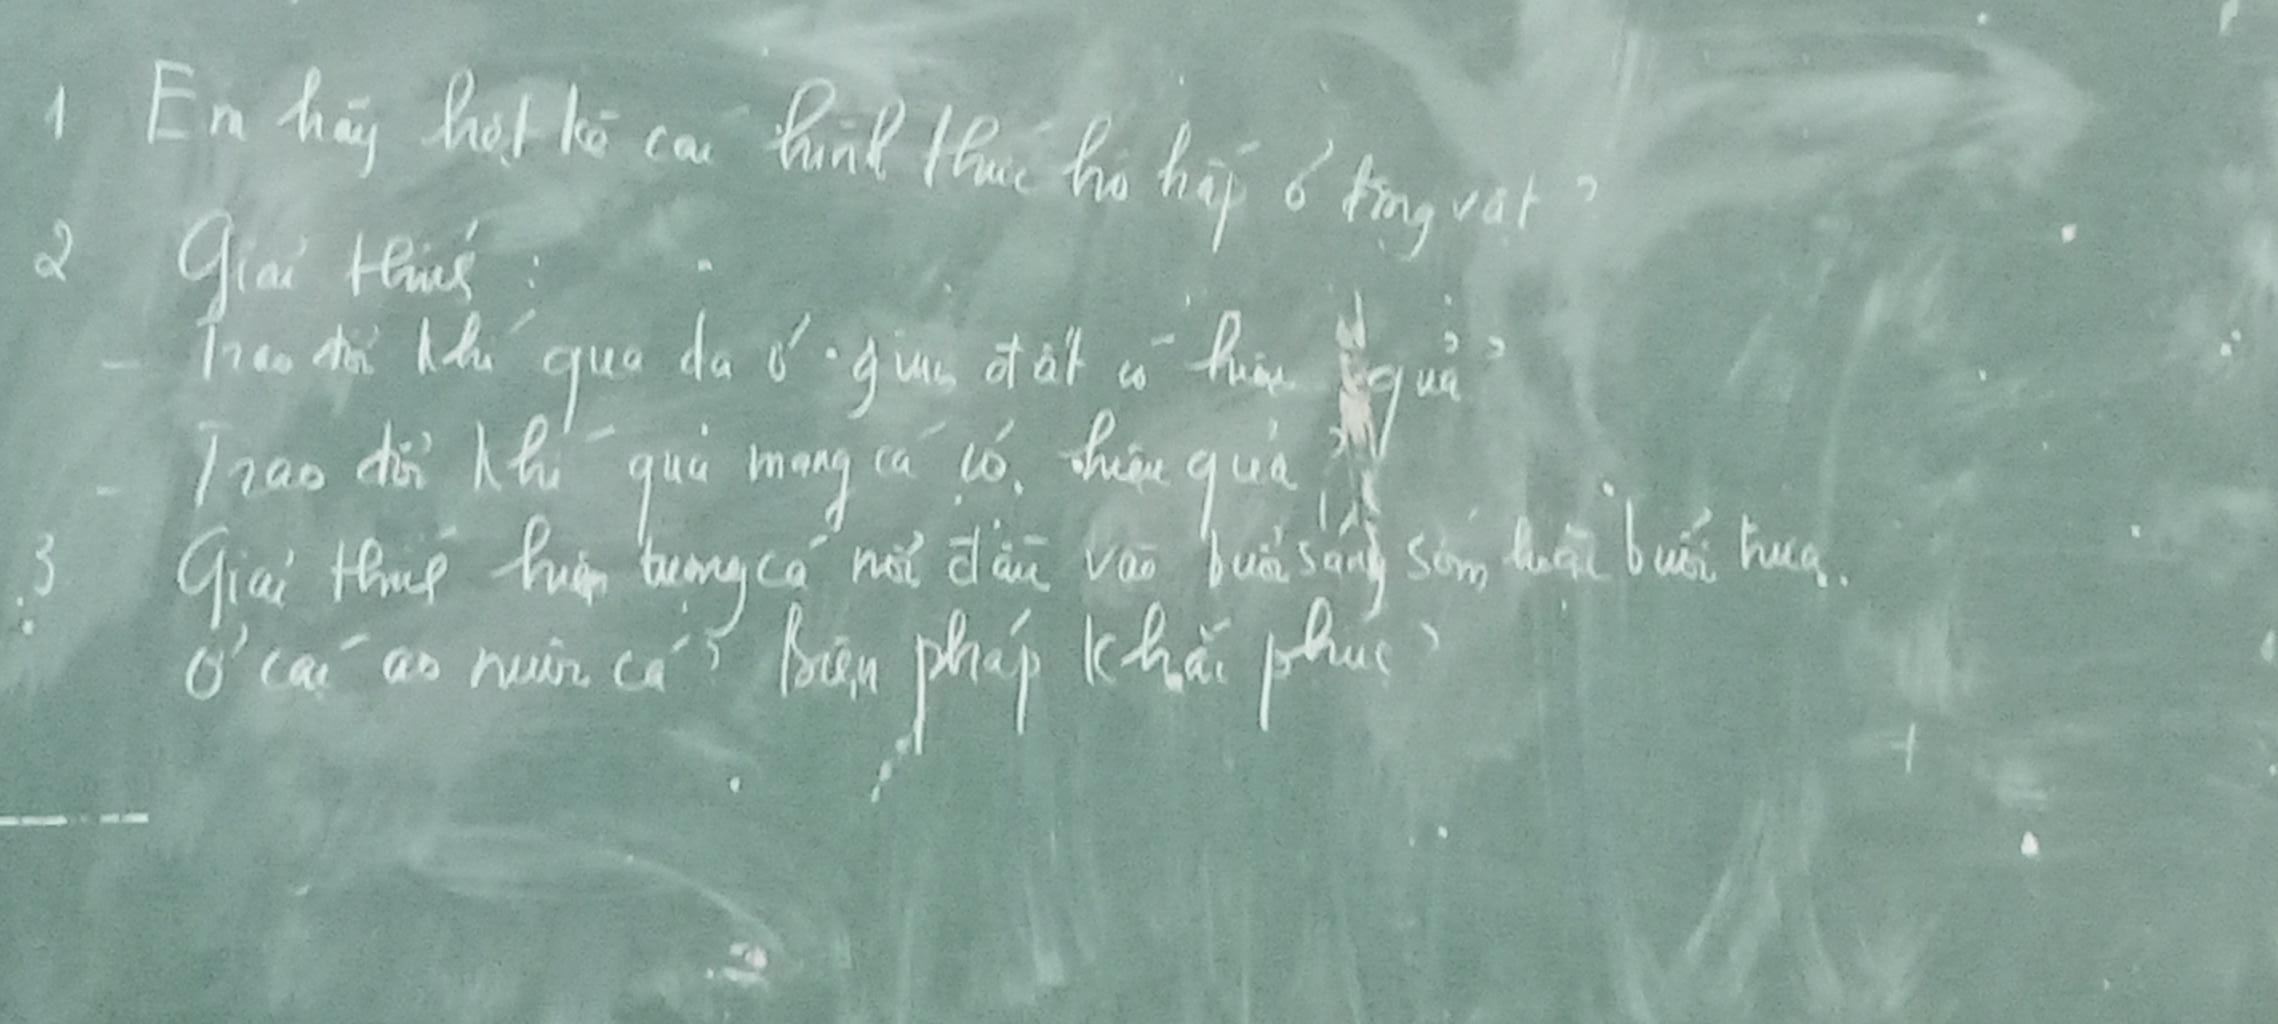 1 Em hãy liệt kê các hình thức hô hấp ở động vật?
2 Giải thích:
- Trao đổi khí qua da ở giun đất có hiệu quả?
- Trao đổi khí qua mang cá có hiệu quả?
3 Giải thích hiện tượng cá nổi đầu vào buổi sáng sớm hoặc buổi trưa.
ở các ao nuôi cá? Biện pháp khắc phục?